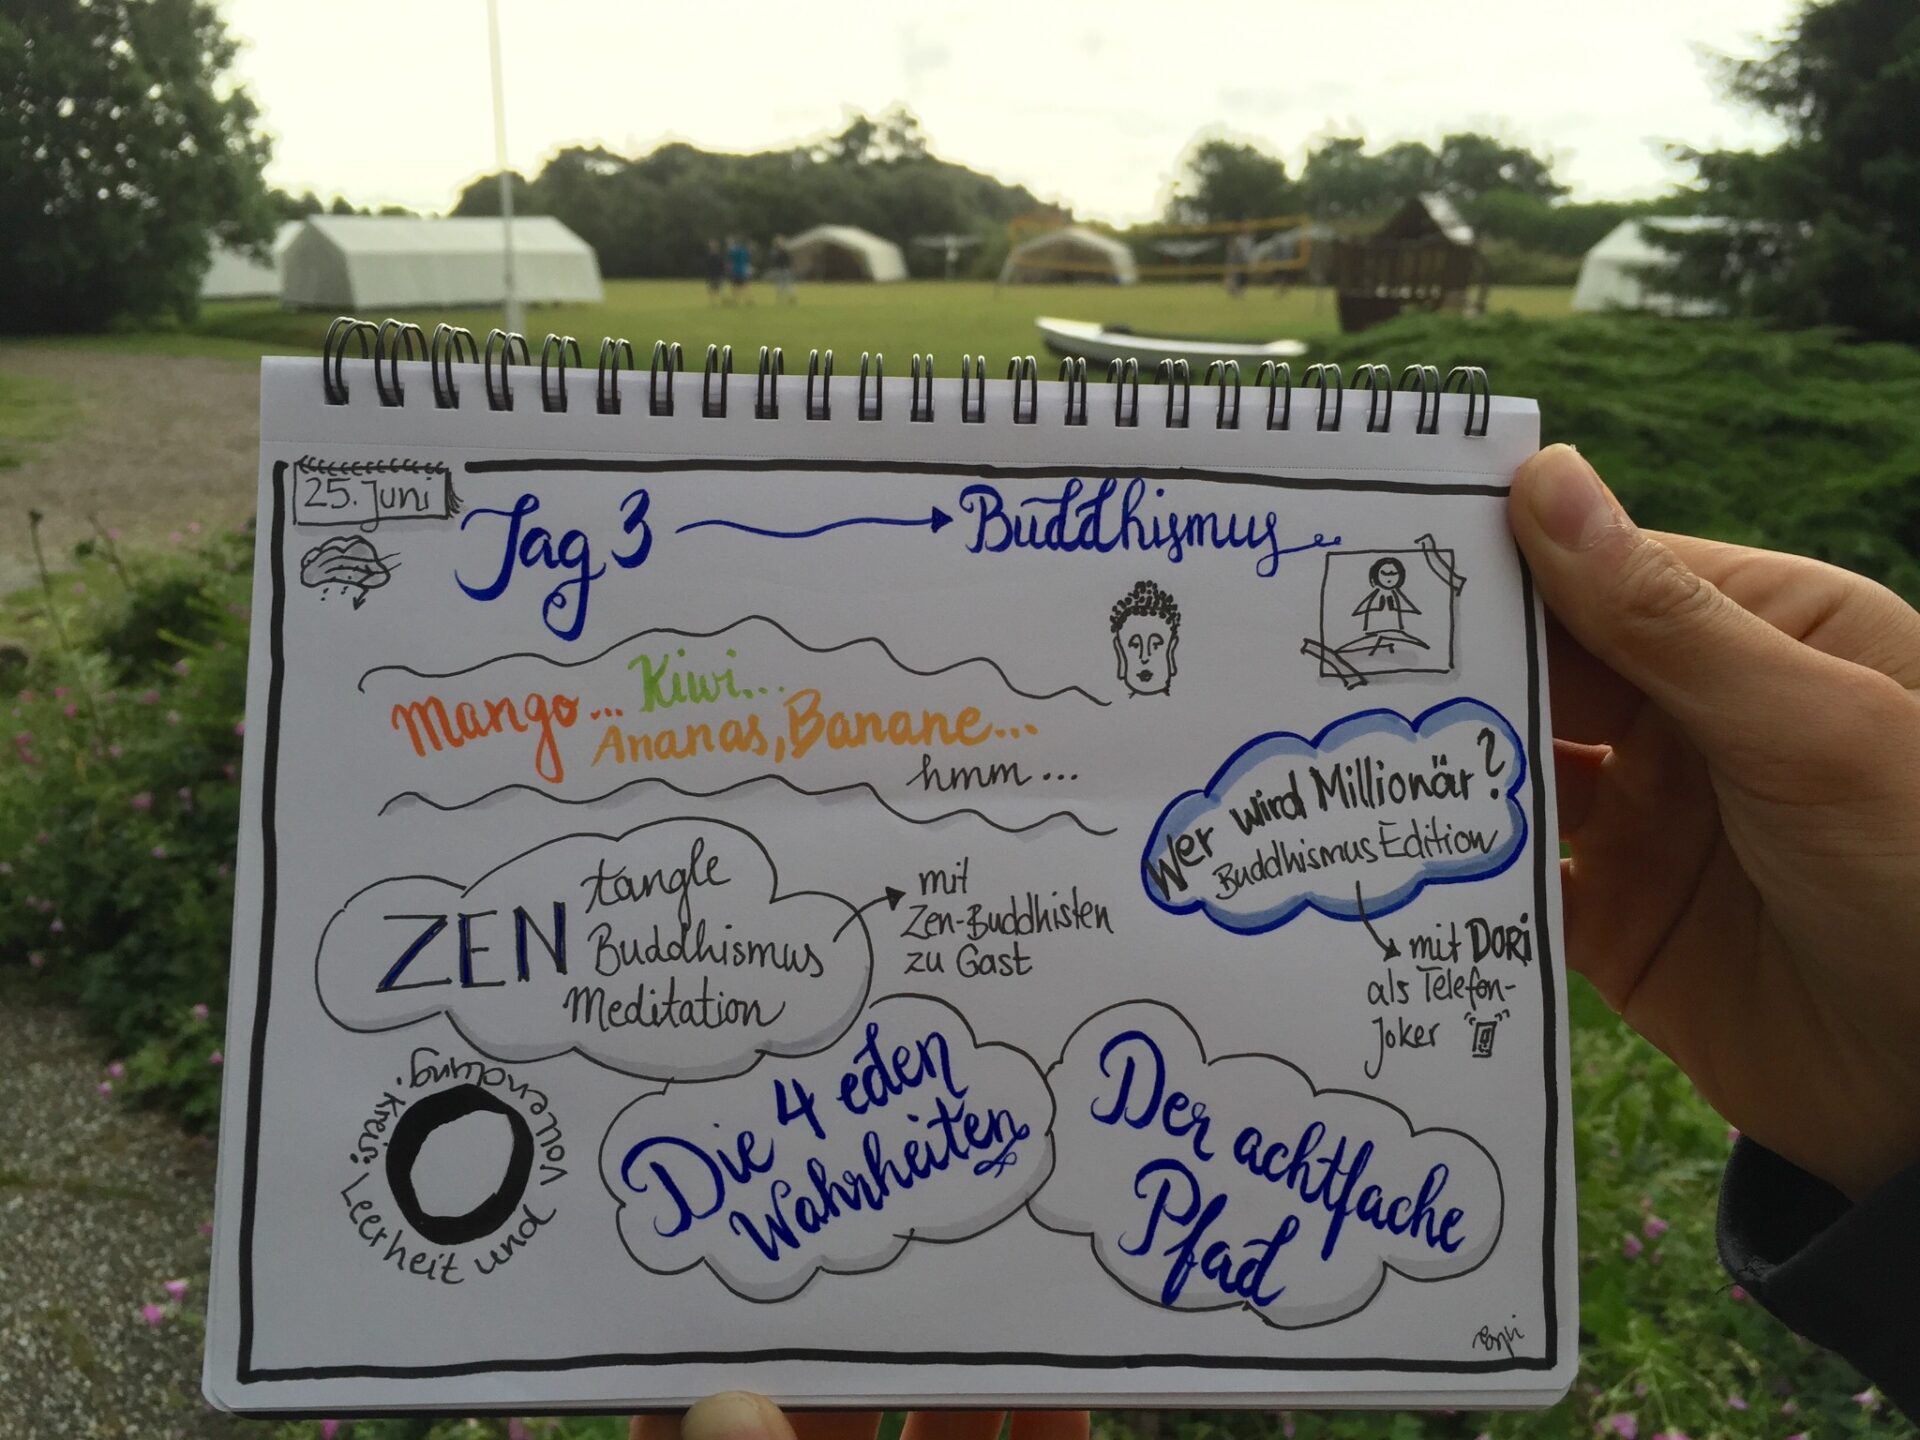 25. Juni
Tag 3
Buddhismus
Mango... Kiwi...
Ananas, Banane...
hmm...
Wer wird Millionär?
Buddhismus Edition
mit DORI
als Telefon-
Joker
ZEN tangle
Buddhismus
Meditation
mit
Zen-Buddhisten
zu Gast
Kreis: Leerheit und Vollendung.
Die 4 edlen
Wahrheiten
Der achtfache
Pfad